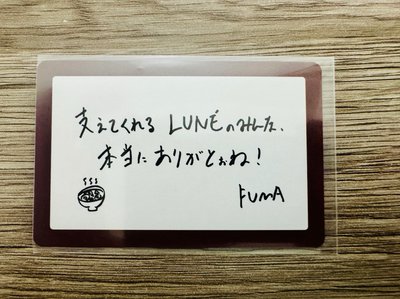 支えてくれる LUNÉのみんな、
本当にありがとぉね！
FUMA